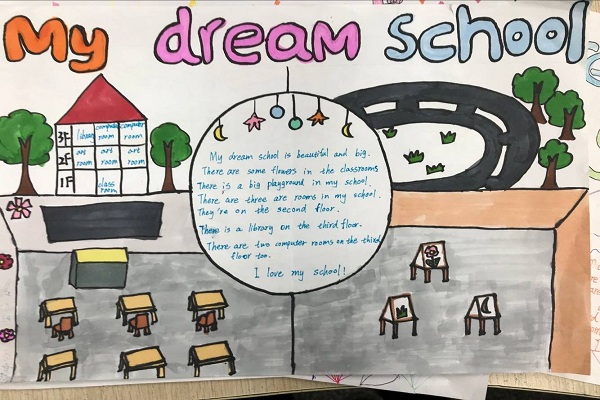 My dream school
3F library computer room computer room
2F art room art room art room
1F class room
My dream school is beautiful and big.
There are some flowers in the classrooms
There is a big playground in my school.
There are three are rooms in my school.
They're on the second floor.
There is a library on the third floor.
There are two computer rooms on the third
floor too.
I love my school!